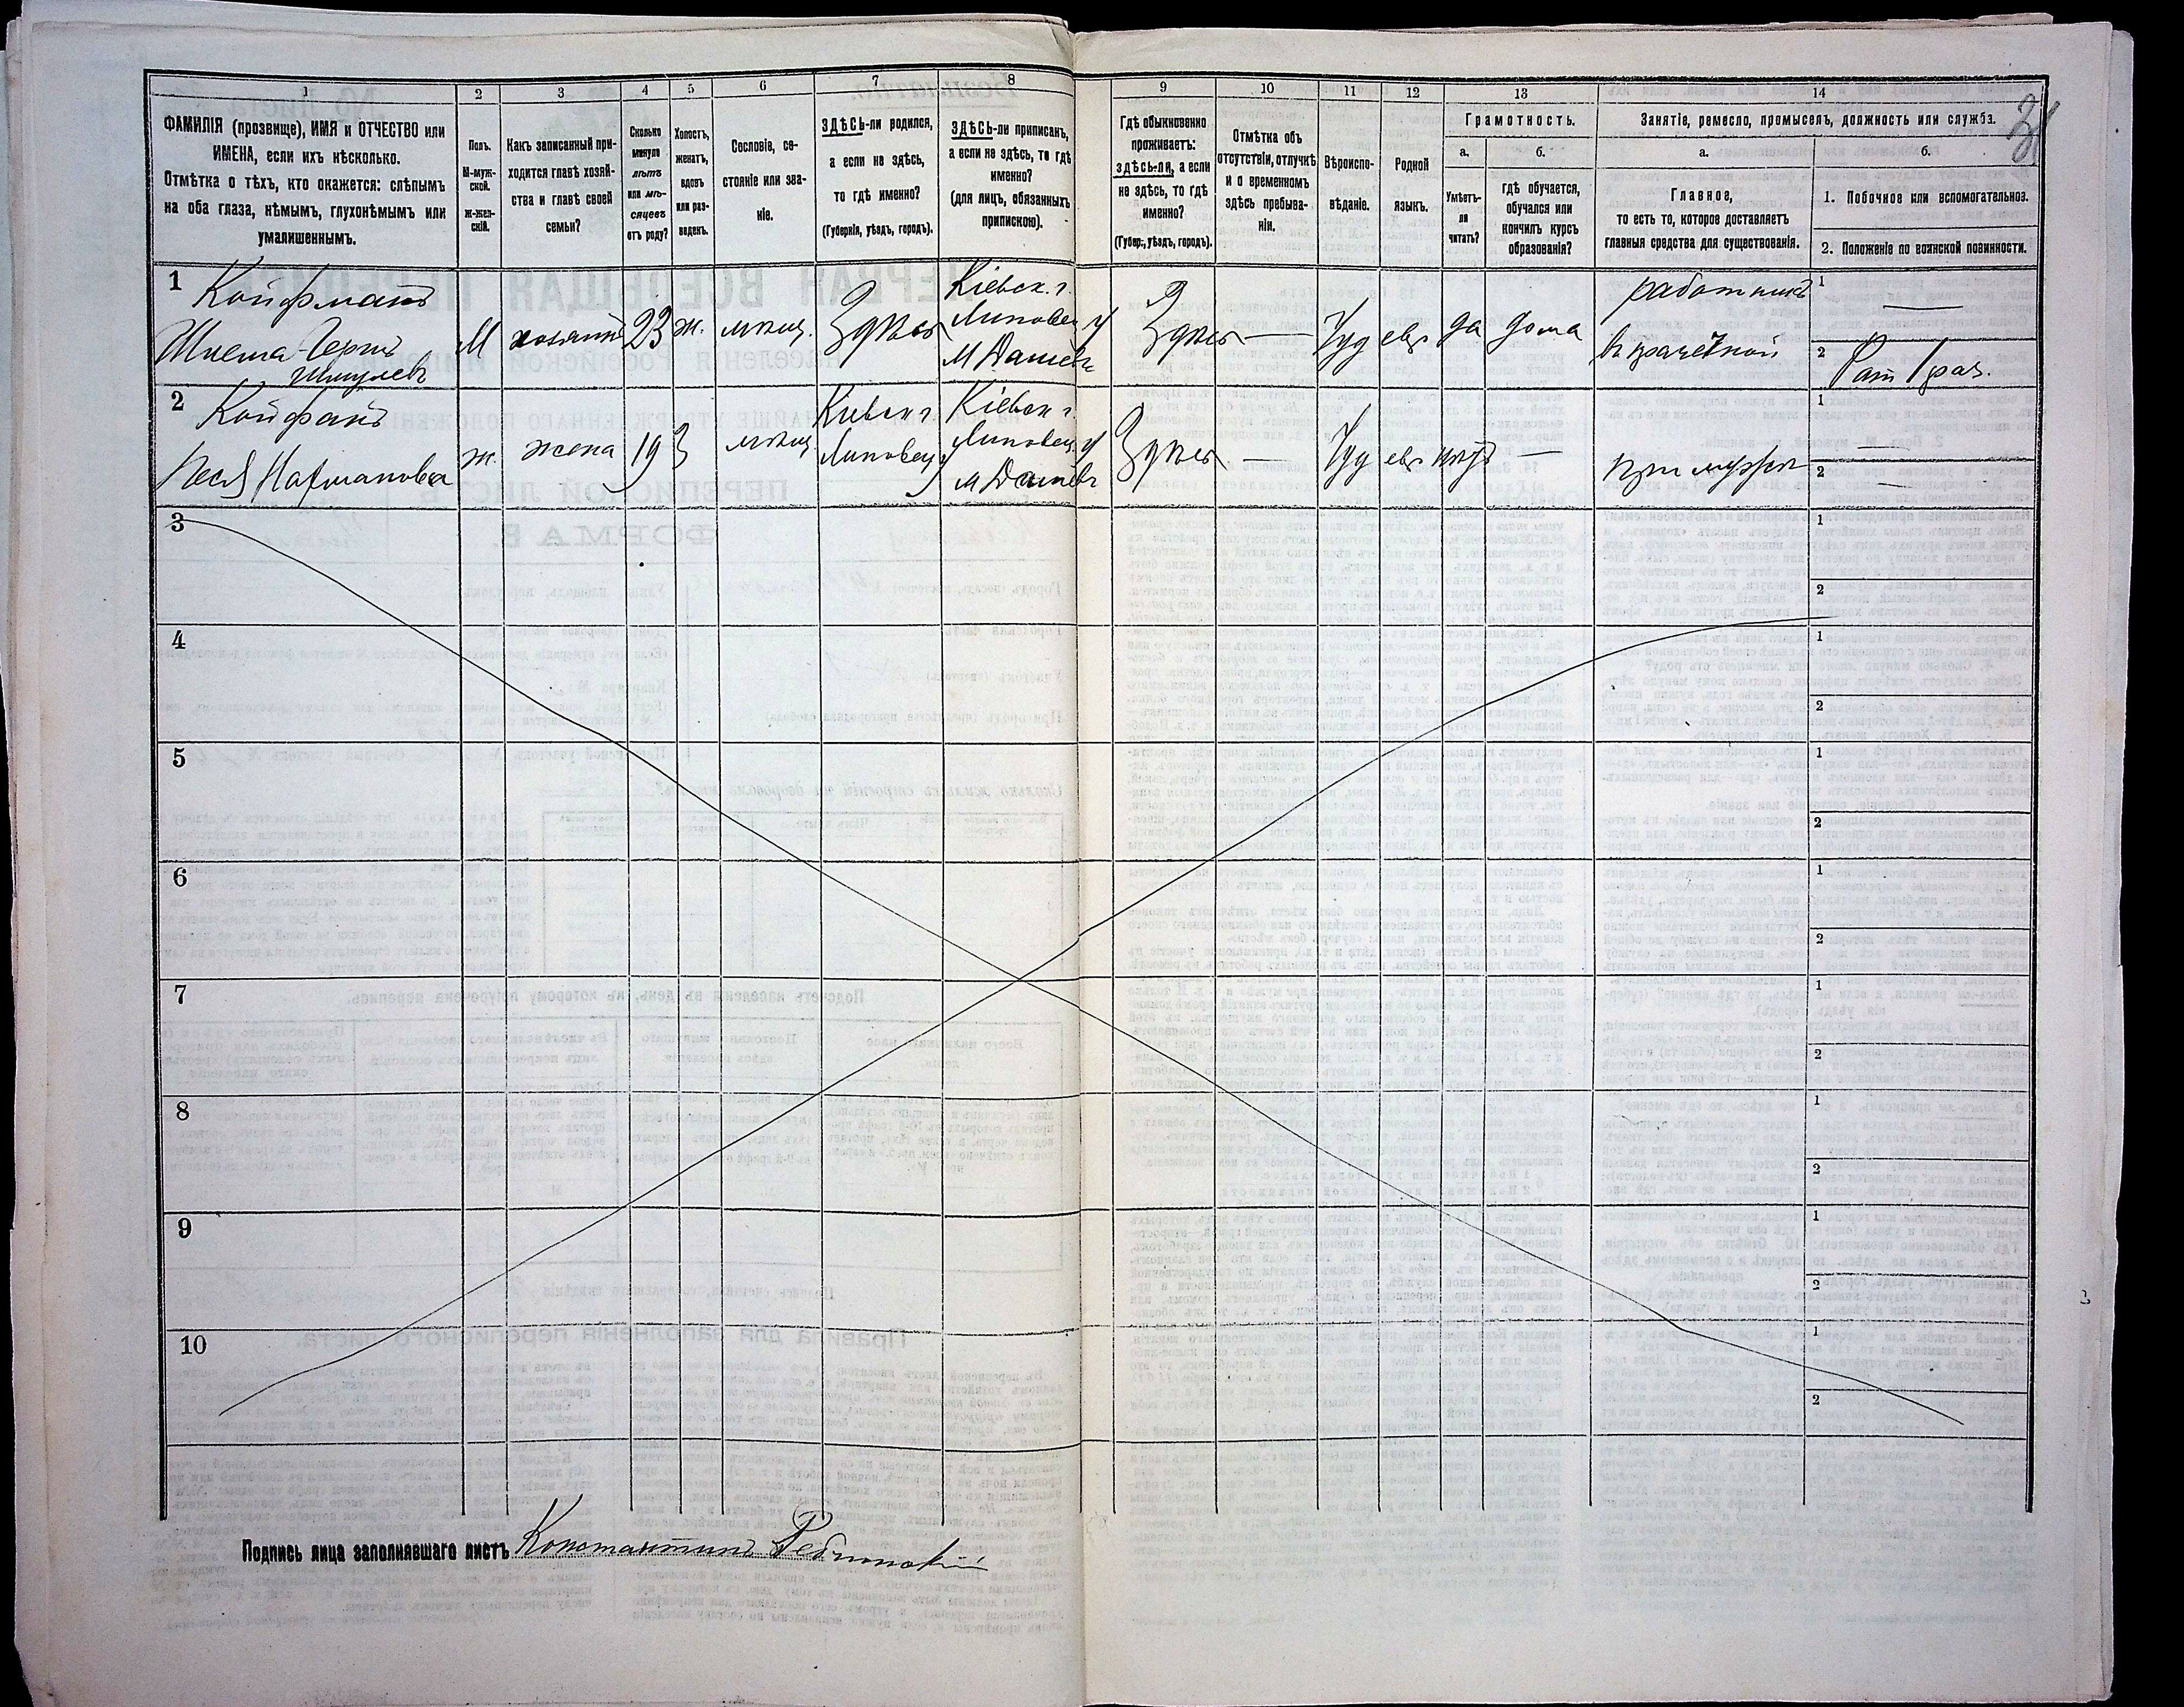 1 2 3 4 5 6 7 8 9 10 11 12 13 14
ФАМИЛІЯ (прозвище), ИМЯ и ОТЧЕСТВО или
ИМЕНА, если ихъ нѣсколько.
Отмѣтка о тѣхъ, кто окажется: слѣпымъ
на оба глаза, нѣмымъ, глухонѣмымъ или
умалишеннымъ.
Полъ.
М-муж-
ской.
Ж-жен-
скій.
Какъ записанный при-
ходится главѣ хозяй-
ства и главѣ своей
семьи?
Сколько
минуло
лѣтъ
или мѣ-
сяцевъ
отъ роду?
Холостъ,
женатъ,
вдовъ
или раз-
веденъ.
Сословіе, со-
стояніе или зва-
ніе.
ЗДѢСЬ-ли родился,
а если не здѣсь,
то гдѣ именно?
(Губернія, уѣздъ, городъ).
ЗДѢСЬ-ли приписанъ,
а если не здѣсь, то гдѣ
именно?
(для лицъ, обязанныхъ
припискою).
Гдѣ обыкновенно
проживаетъ:
здѣсь-ли, а если
не здѣсь, то гдѣ
именно?
(Губер., уѣздъ, городъ).
Отмѣтка объ
отсутствіи, отлучкѣ
и о временномъ
здѣсь пребыва-
ніи.
Вѣроиспо-
вѣданіе.
Родной
языкъ.
Грамотность.
а.
Умѣетъ-
ли
читать?
б.
гдѣ обучается,
обучался или
кончилъ курсъ
образованія?
Занятіе, ремесло, промыселъ, должность или служба.
а.
Главное,
то есть то, которое доставляетъ
главныя средства для существованія.
б.
1. Побочное или вспомогательное.
2. Положеніе по воинской повинности.
1 Койфманъ
Шмулевъ
М хозяинъ 23 ж. мѣщ. Здѣсь
Кіевск. г.
Липовец у
М Дашевъ
Здѣсь — Іуд евр да дома
работникъ
1 —
2 Рат 1 раз.
2 Койфанъ
Песя Нахманова
ж. жена 19 З мѣщ
Киевск г
Липовец у
Кіевск г.
Липовец у
м Дашевъ
Здѣсь — Іуд евр нѣтъ —
при мужѣ
1 —
2 —
3 1
2
4 1
2
5 1
2
6 1
2
7 1
2
8 1
2
9 1
2
10 1
2
Подпись лица заполнявшаго листъ Константинъ